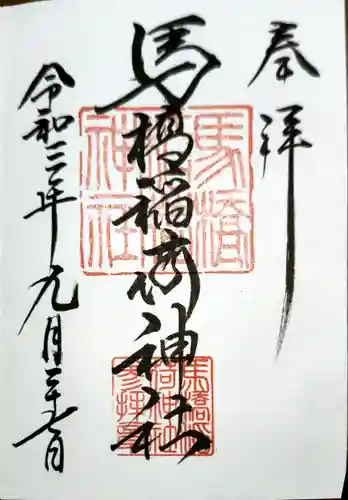 奉拝
馬橋稲荷神社
令和三年九月二十七日
馬橋稲荷神社
馬橋稲荷神社参拝章